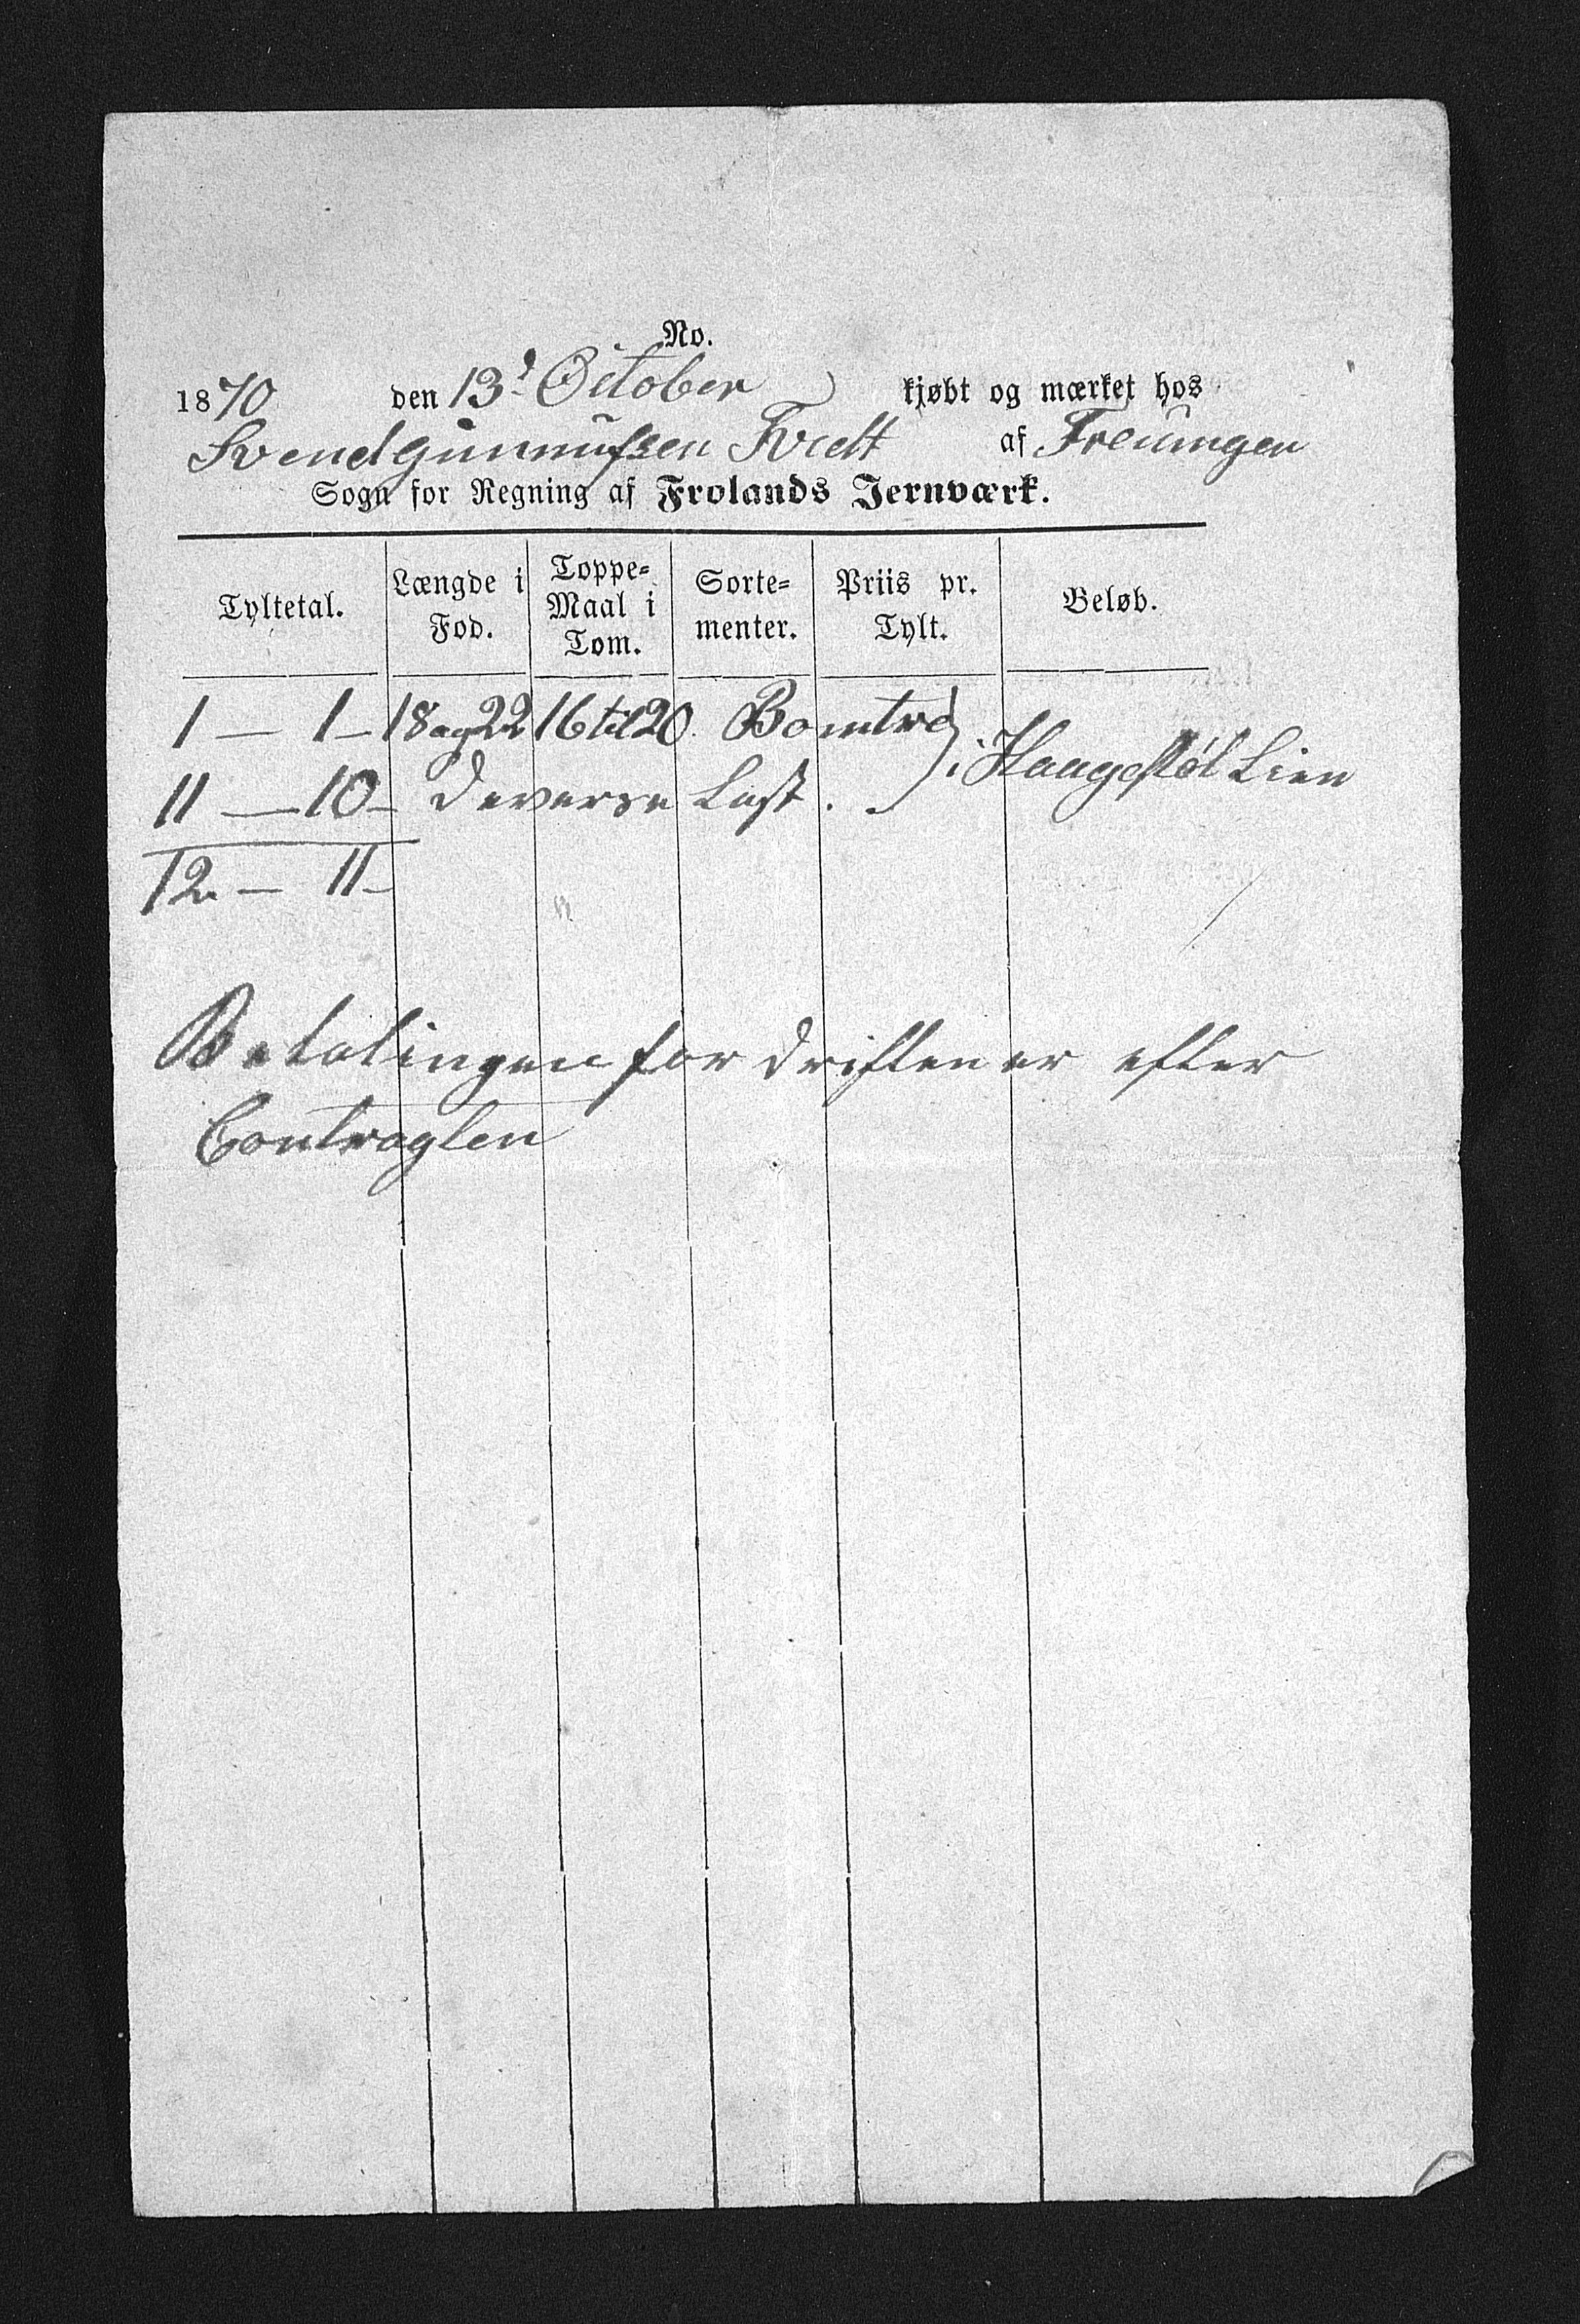 No.
1870 den 13d October kjøbt og mærket hos
Svend Gunnufsen Tvedt af Treungen
Sogn for Regning af Frolands Jernværk.
Tyltetal. Længde i Fod. Toppe-Maal i Tom. Sorte-menter. Priis pr. Tylt. Beløb.
1 — 1 – 18 og 22 16 til 20. Bomtre
i Haugestøl Lien
11 — 10 – Deverse Last . .
12. — 11 –
Betalingen for Driften er efter
Contragten